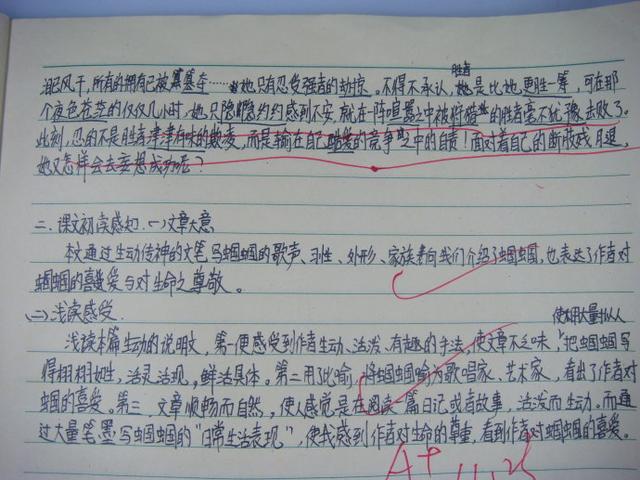 泪已风干,所有的拥有已被篡夺……她只有忍受强者的劫掠。不得不承认,胜者是比她更胜一筹,可在那
个夜色苍茫的仅仅几小时,她只隐隐约约感到不安,就在一阵喧嚣之中被狩猎的胜者毫不犹豫去败了。
此刻,忍的不是胜者津津有味的,而是输在自己酷爱的竞争之中的自责!面对着自己的断肢残
她又怎样会去妄想成功呢?
二.课文初读感知.(一)文章大意
本文通过生动传神的文笔写蝈蝈的歌声、习性、外形、家族来向我们介绍了蝈蝈,也表达了作者对
蝈蝈的喜爱与对生命之尊敬。
(二)浅读感受
使用大量拟人
浅读本篇生动的说明文,第一便感受到作者生动、活泼、有趣的手法,使文章不乏味,把蝈蝈写
得栩栩如生,活灵活现,鲜活具体。第二用了比喻,将蝈蝈喻为歌唱家、艺术家,看出了作者对
蝈蝈的喜爱。第三,文章顺畅而自然,使人感觉是在阅读一篇日记或者故事,活泼而生动。而通
过大量笔墨写蝈蝈的“日常生活表现”,使我感到作者对生命的尊重,看到作者对蝈蝈的喜爱。
A+